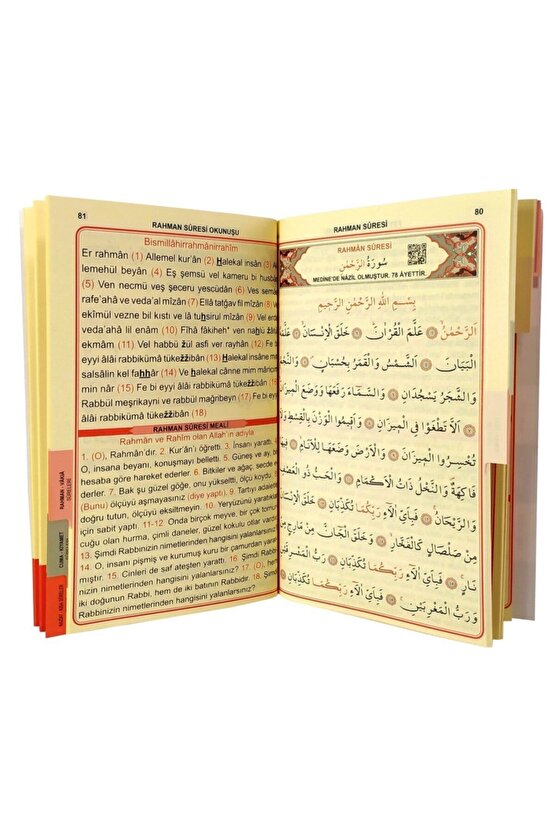 81
RAHMAN SÛRESİ OKUNUŞU
Bismillâhirrahmânirrahîm
Er rahmân (1) Allemel kur'ân (2) Halekal insân (3)
lemehül beyân (4) Eş şemsü vel kameru bi husbân
(5) Ven necmü veş şeceru yescüdân (6) Ves semâe
rafe'ahâ ve veda'al mîzân (7) Ellâ tatğav fil mîzân (8)
ekîmül vezne bil kıstı ve lâ tuhsirul mîzân (9) Vel erda
veda'ahâ lil enâm (10) Fîhâ fâkiheh* ven nahlü zâtül
ekmâm (11) Vel habbü zül asfi ver rayhân (12) Fe bi
eyyi âlâi rabbikümâ tükezzibân (13) Halekal insâne min
salsâlin kel fahhâr (14) Ve halekal cânne min mâricin
min nâr (15) Fe bi eyyi âlâi rabbikümâ tükezzibân (16)
Rabbül meşrikayni ve rabbül mağribeyn (17) Fe bi eyyi
âlâi rabbikümâ tükezzibân (18)
RAHMAN SÛRESİ MEALİ
Rahmân ve Rahîm olan Allah'ın adıyla
1. (O), Rahmân'dır. 2. Kur'an'ı öğretti. 3. İnsanı yarattı.
O, insana beyanı, konuşmayı belletti. 5. Güneş ve ay, bir
hesaba göre hareket ederler. 6. Bitkiler ve ağaç, secde
derler. 7. Bak şu güzel göğe, onu yükseltti, ölçü koydu.
(Bunu) ölçüyü aşmayasınız (diye yaptı). 9. Tartıyı adaletle
doğru tutun, ölçüyü eksiltmeyin. 10. Yeryüzünü yaratıklar
için sabit yaptı. 11-12. Onda birçok meyve, bir çok
cuğu olan hurma, çimli daneler, güzel kokulu otlar vardır.
13. Şimdi Rabbinizin nimetlerinden hangisini yalanlarsınız?
14. O, insanı pişmiş ve kurumuş kuru bir çamurdan yarat-
mıştır. 15. Cinleri de saf ateşten yarattı. 16. Şimdi Rabbi-
nizin nimetlerinden hangisini yalanlarsınız? 17. (O), hem
iki doğunun Rabbi, hem de iki batının Rabbidir. 18. Şimdi
Rabbinizin nimetlerinden hangisini yalanlarsınız?
RAHMAN - VÂKIA
SÛRELERİ
CUMA - KIYAMET
RAHMAN SÛRESİ
80
RAHMÂN SÛRESİ
سُورَةُ الرَّحْمٰنِ
MEDİNE'DE NÂZİL OLMUŞTUR. 78 ÂYETTİR.
بِسْمِ اللّٰهِ الرَّحْمٰنِ الرَّحِيمِ
اَلرَّحْمٰنُۙ ﴿١﴾ عَلَّمَ الْقُرْاٰنَۜ ﴿٢﴾ خَلَقَ الْاِنْسَانَۙ ﴿٣﴾ عَلَّمَهُ
الْبَيَانَ ﴿٤﴾ اَلشَّمْسُ وَالْقَمَرُ بِحُسْبَانٍۙ ﴿٥﴾ وَالنَّجْمُ
وَالشَّجَرُ يَسْجُدَانِ ﴿٦﴾ وَالسَّمَٓاءَ رَفَعَهَا وَوَضَعَ الْمِيزَانَۙ
﴿٧﴾ اَلَّا تَطْغَوْا فِي الْمِيزَانِ ﴿٨﴾ وَاَقِيمُوا الْوَزْنَ بِالْقِسْطِ وَلَا
تُخْسِرُوا الْمِيزَانَ ﴿٩﴾ وَالْاَرْضَ وَضَعَهَا لِلْاَنَامِۙ ﴿١٠﴾ فِيهَا
فَاكِهَةٌ وَالنَّخْلُ ذَاتُ الْاَكْمَامِۖ ﴿١١﴾ وَالْحَبُّ ذُو الْعَصْفِ
وَالرَّيْحَانُۚ ﴿١٢﴾ فَبِاَيِّ اٰلَٓاءِ رَبِّكُمَا تُكَذِّبَانِ ﴿١٣﴾ خَلَقَ الْاِنْسَانَ
مِنْ صَلْصَالٍ كَالْفَخَّارِۙ ﴿١٤﴾ وَخَلَقَ الْجَٓانَّ مِنْ مَارِجٍ مِنْ
نَارٍۚ ﴿١٥﴾ فَبِاَيِّ اٰلَٓاءِ رَبِّكُمَا تُكَذِّبَانِ ﴿١٦﴾ رَبُّ الْمَشْرِقَيْنِ
وَرَبُّ الْمَغْرِبَيْنِۚ ﴿١٧﴾ فَبِاَيِّ اٰلَٓاءِ رَبِّكُمَا تُكَذِّبَانِ ﴿١٨﴾